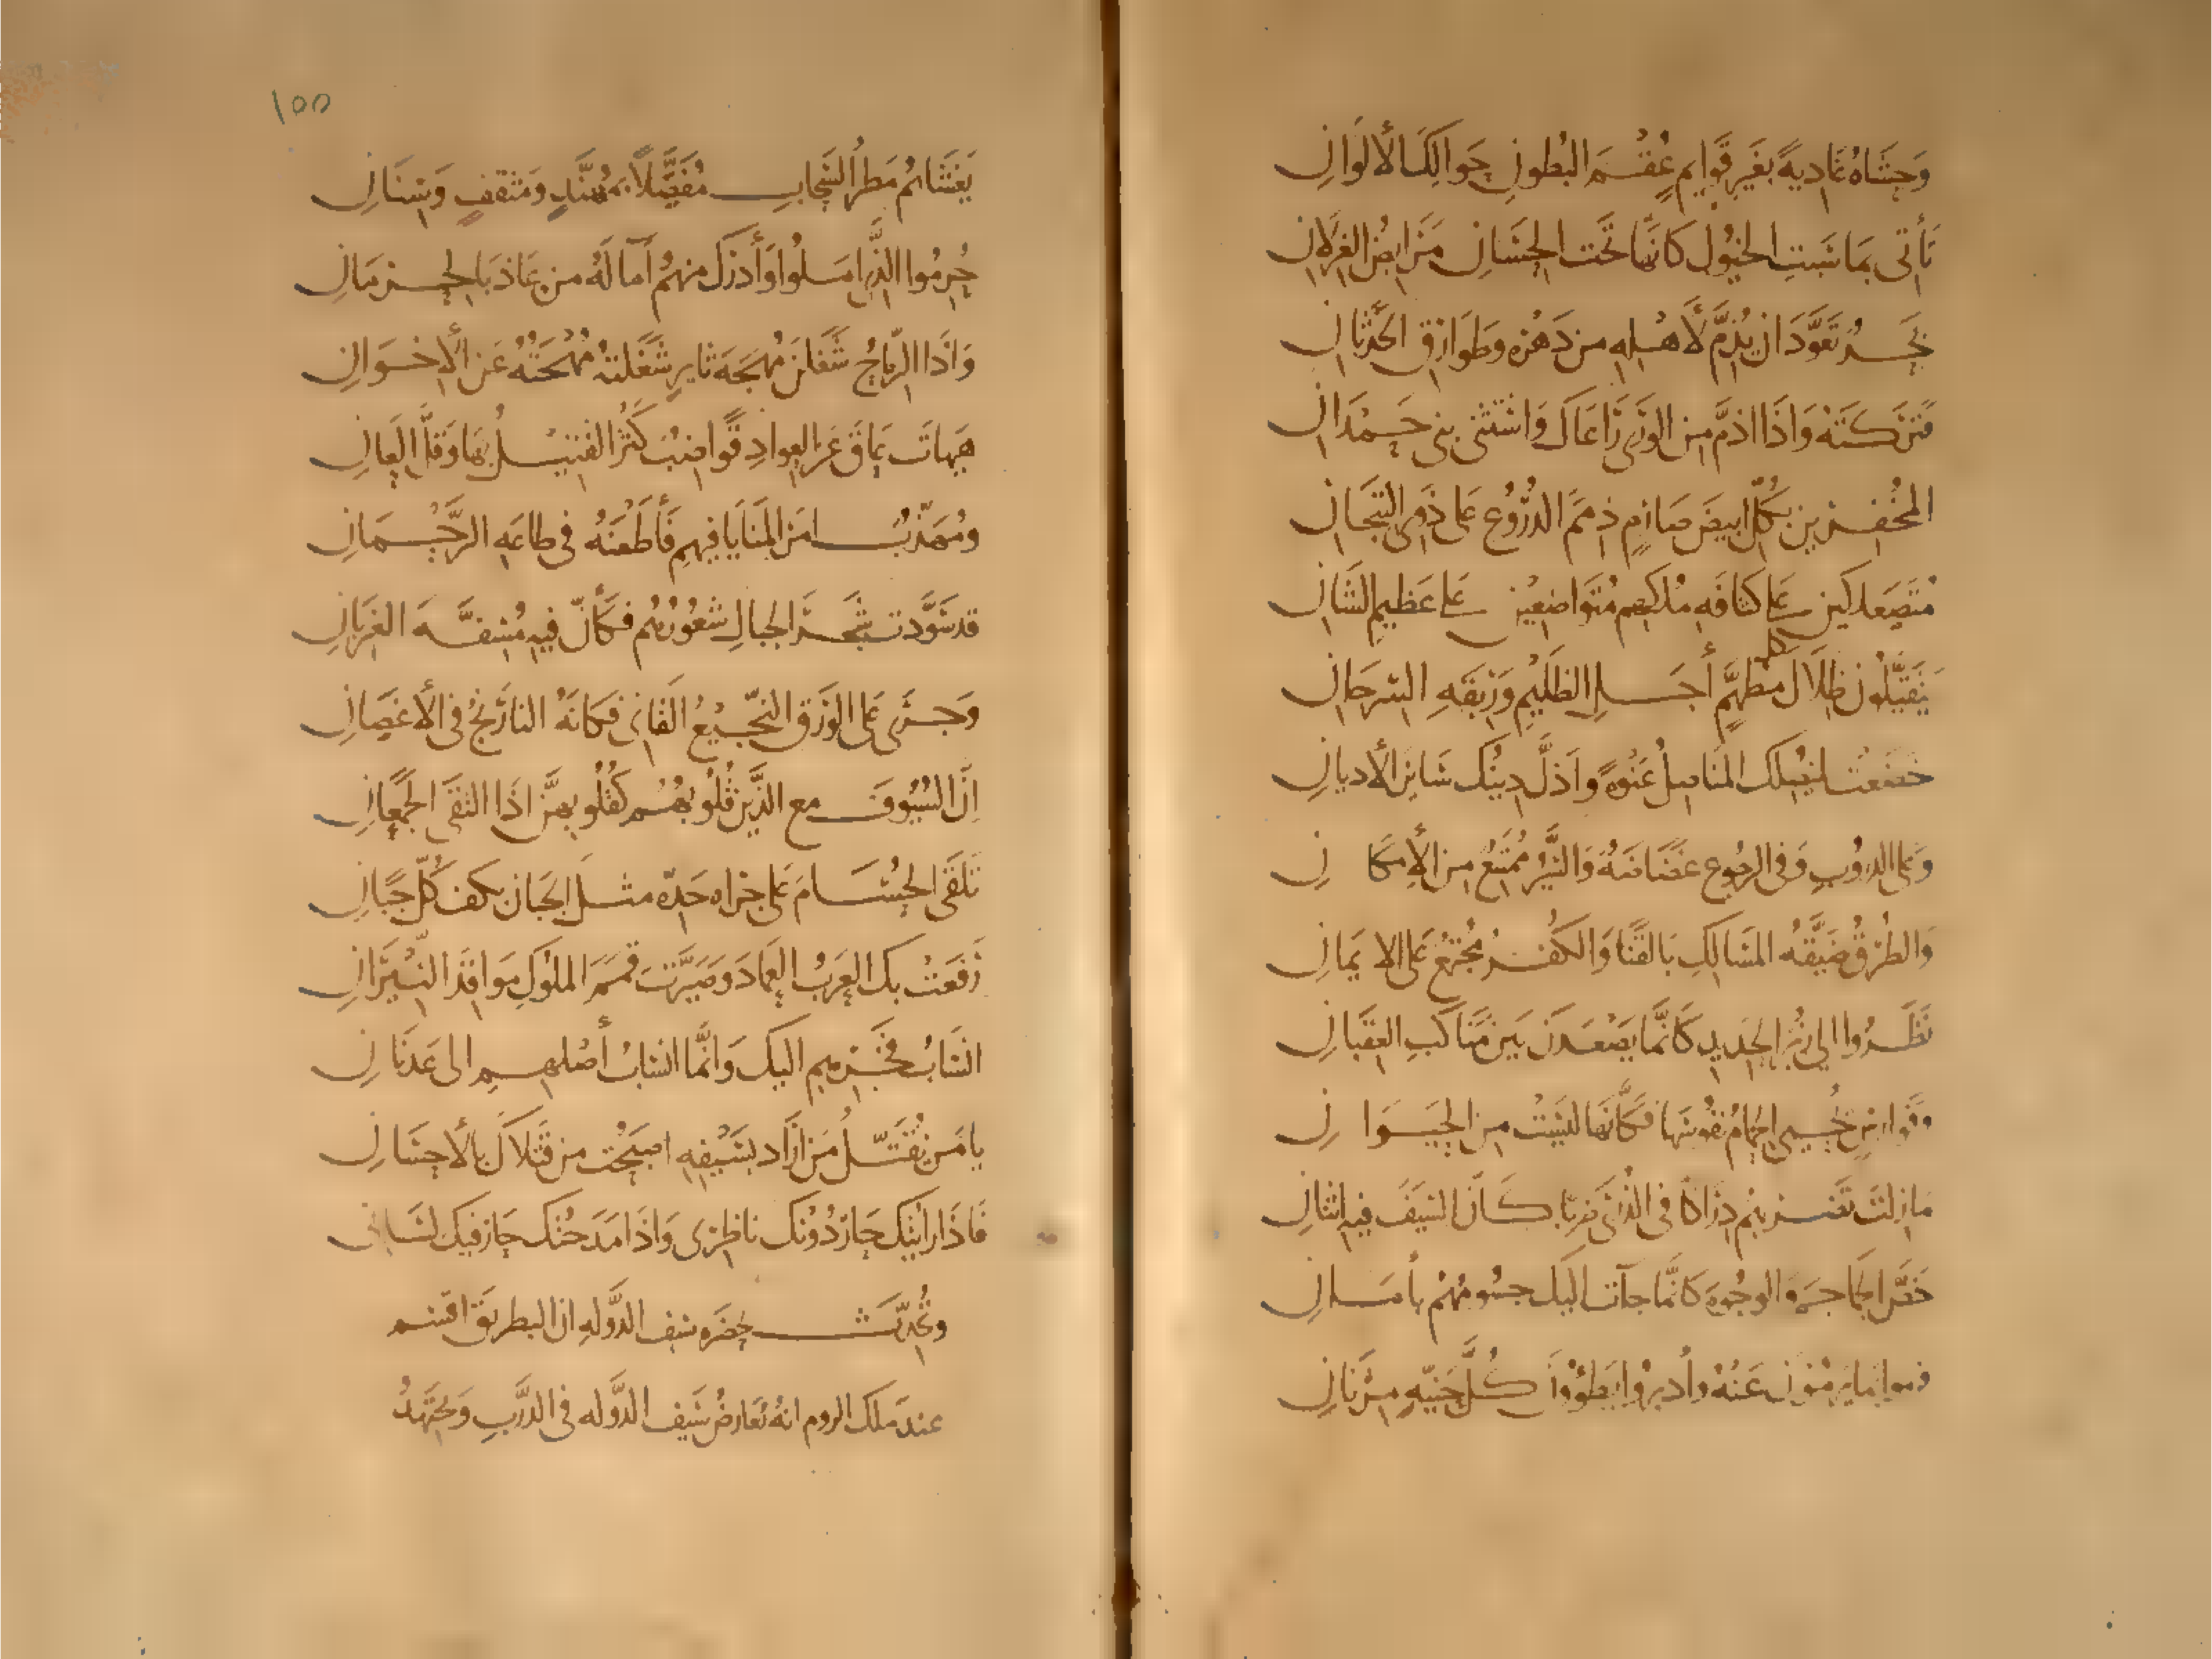 وَحَشَاهُ عَادِيةً بغَيرِ قَوَايمٍ عُقُمَ البُطُونِ حَوالِكَ الألوَانِ
تَأتى بمَا سَبَتِ الخيُولُ كَانهَا تَحَت الحِسَانِ مَرَابضُ الغِزلَانِ
بَحرٌ تَعَوَّدَ ان يُذِمَّ لأهْلِهِ من دَهْرِه وَطَوَارقِ الحَدَثَانِ
فَتَرَكتَهُ وَاذَا اذَمَّ مِن الوَرَى رَاعَاكَ وَاسْتَثنى بنى حَمْدَانِ
المخُفِرِين بكُلّ ابيضَ صَارمٍ ذِمَمَ الدُرُوُعِ عَلى ذَوِى التِيجَانِ
مُتَصَعلِكينَ عَلى كثافَهِ مُلكِهم مُتَواضعِيْنَ عَلى عَظيِم الشَانِ
يَتَقيَّلُون ظِلَالَ كل مطهَّمٍ أجَلِ الظَلِيْمِ وَرِبقَهِ السَرحَانِ
خَضَعَتْ لمُنصُلِكَ المنَاصِلُ عَنْوةً وَاذَلَّ دِينُك سَايرَ الأديانِ
وَعَلى الدرُوبِ وَفى الرجُوعِ غَضَاضَةٌ وَالسَّيرُ مُمتَنِعٌ مِن الأِمكَانِ
وَالطُرقُ ضَيِّقَةُ المسَالِكِ بَالقَنَا وَالكُفرُ مُجتَمعٌ عَلى الايمَانِ
نَظَرُوا الى زُبَرِ الحَدِيدِ كَانَّمَا يَصْعَدنَ بَينَ مَنَاكبِ العِقبَانِ
وَفَوارِسٍ يُحيِى الحِمَامُ نفُوسَهَا فَكَأنهَا ليَسَتْ مِن الحَيَوَانِ
مَا زِلتَ تَضربهُم دِرَاكًا فى الذُرَى ضَربًا كَأنَّ السَيفَ فِيهِ اثنَانِ
خَصَّ الجَماجِمَ وَالوجُوهَ كَانَّمَا جآت اليَك جسُومُهُمْ بأمَانِ
فرمَوا بمَا يَرمُونَ عَنْهُ وأدبرُوا يَطَؤونَ كُلَّ حَنِيَّهٍ مِرْنَانِ
١٥٥
يَغشَاهُمُ مَطرُ السَّحَابِ مُفَصَّلاً بمُهَنَّدٍ وَمثقفٍ وَسِنَانِ
حُرِمُوا الَّذى امَلُوا وَأدرَكَ منهُمُ آمَالَهُ من عَاذ بَالحِرمَانِ
وَاذَا الرّمَاحُ شَغَلنَ مُهجَةَ ثَايرٍ شَغَلتهُ مُهْجَتُهُ عَن الأِخوَانِ
هَيهاتَ عَاقَ عَن العِوادِ قَواضبٌ كَثُرَ القَتيلُ بهَا وَقَلَّ العَانِ
ومُهَذَّبٌ امَرَ المنَايَا فِيهِمِ فَأَطَعْنَهُ فى طاعَهِ الرَّحْمَانِ
قد سَوَّدَت شَجَرَ الجبَالِ شُعُورُهُم فَكَأنّ فيِهِ مُسِفَّهَ الغِرْبَانِ
وَجَرى عَلى الوَرَقِ النَجِيْعُ القَانِى فكَانَهُ النارَنجُ فى الأغصَانِ
اِنَّ السُيُوفَ مع الذّينَ قُلُوبُهُم كَقُلُوبهِنَّ اذَا التقَى الجَمعَانِ
تَلقَى الحُسَامَ عَلى جرَاه حَدّه مثلَ الجَبَان بكَف كُلّ جَبَانِ
رَفَعَتْ بكَ العَرَبُ العِمَادَ وَصَيَّرَتْ قِمَمَ الملُوكِ مَواقدَ النِيرَانِ
انسَابُ فَخرِهِم اليكَ وَانَّمَا انسَابُ أصْلِهِمِ الى عَدنَانِ
يا مَن يُقَتّلُ مَن ارَادَ بسَيْفِهِ اصبَحْتُ من قَتلَاكَ بالأحسَانِ
فَاذَا رَايتكَ حَارَ دُوْنَك نَاظِرى وَاذَا مَدَحْتُكَ حَارَ فيكَ لسَانِى
وتُحُدِّثَ بحَضرَه سَيف الدَّولهِ ان البطريَق اقسَم
عندَ ملك الروم انهُ يُعَارضُ سَيف الدَّوله فى الدَّربِ وَيجتَهِدُ